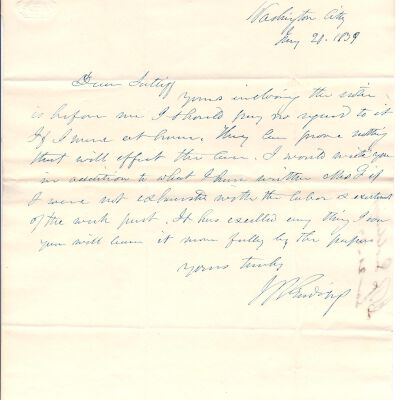 Washington City
Jany 20. 1839
Dear Sutliff
Yours inclosing the notice
is before me I should pay no regard to it
if I were at home. They can prove nothing
that will affect the case. I would write you
in addition to what I have written
I were not exhausted with the labor & excitement
of the week past. It has excelled any thing I ever
you will learn it more fully by the papers
yours truly